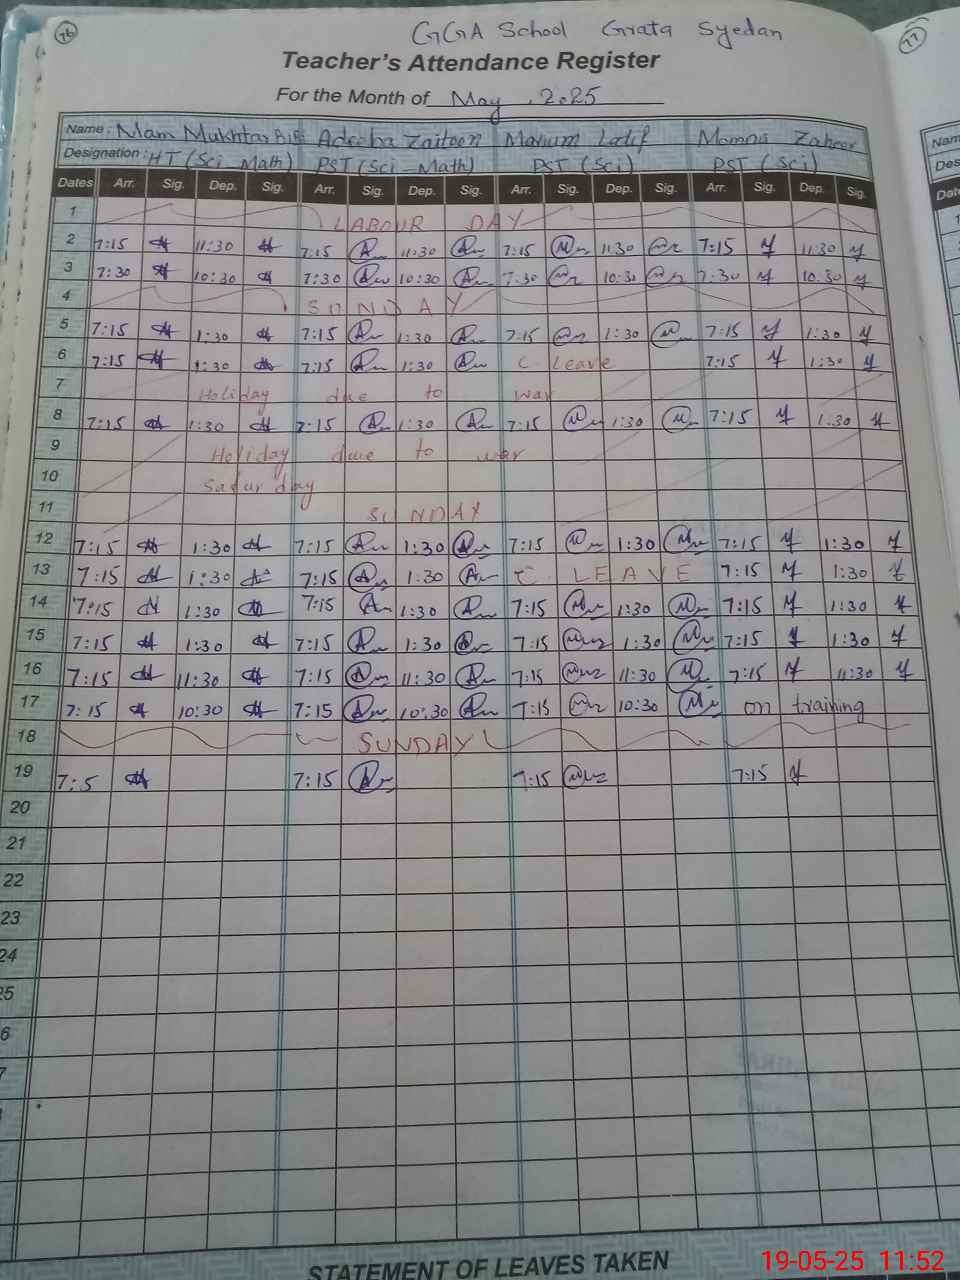 76
GGA School Grata Syedan
77
Teacher's Attendance Register
For the Month of May, 2025
Name: Mam Mukhtar BiBi Adeeba Zaitoon Marium Latif Momna Zaheer
Nam
Designation: HT (Sci-Math) PST (Sci-Math) PST (Sci) PST (Sci)
Des
Dates Arr. Sig. Dep. Sig. Arr. Sig. Dep. Sig. Arr. Sig. Dep. Sig. Arr. Sig. Dep. Sig.
Date
1 LABOUR DAY
2 7:15 11:30 7:15 11:30 7:15 11:30 7:15 11:30
3 7:30 10:30 7:30 10:30 7:30 10:30 7:30 10:30
4 SUNDAY
5 7:15 1:30 7:15 1:30 7:15 1:30 7:15 1:30
6 7:15 1:30 7:15 1:30 C Leave 7:15 1:30
7 Holiday due to war
8 7:15 1:30 7:15 1:30 7:15 1:30 7:15 1:30
9 Holiday due to war
10 Saturday
11 SUNDAY
12 7:15 1:30 7:15 1:30 7:15 1:30 7:15 1:30
13 7:15 1:30 7:15 1:30 C LEAVE 7:15 1:30
14 7:15 1:30 7:15 1:30 7:15 1:30 7:15 1:30
15 7:15 1:30 7:15 1:30 7:15 1:30 7:15 1:30
16 7:15 11:30 7:15 11:30 7:15 11:30 7:15 11:30
17 7:15 10:30 7:15 10:30 7:15 10:30 on training
18 SUNDAY
19 7:5 7:15 7:15 7:15
20
21
22
23
24
25
6
7
STATEMENT OF LEAVES TAKEN
19-05-25 11:52